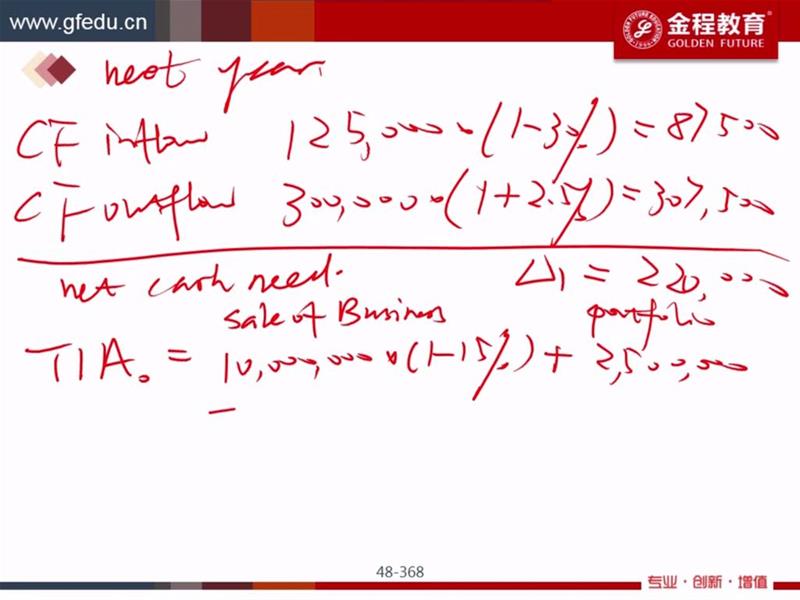 www.gfedu.cn
金程教育
GOLDEN FUTURE
next year.
CF inflow 125,000×(1-30%)=87500
CF outflow 300,000×(1+2.5%)=307,500
net cash need. Δ₁ = 220,000
sale of Business portfolio
TIA₀ = 10,000,000×(1-15%)+2,500,000
48-368
专业·创新·增值